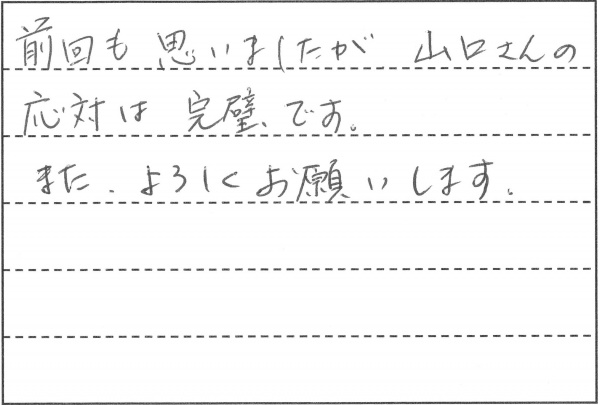 前回も思いましたが 山口さんの
応対は完璧、です。
また、よろしくお願いします。